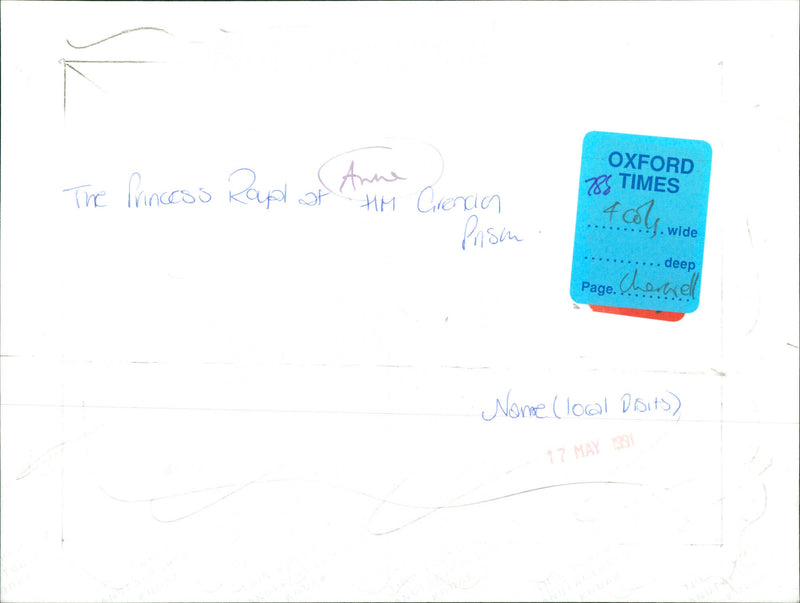 Anne
The Princess Royal at HM Grendon
Prison.
OXFORD
TIMES
785
4 cols wide
deep
Page. Cherwell
Name (local Visits)
17 MAY 1991